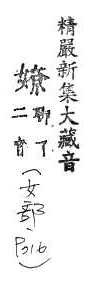 精嚴新集大藏音
嫽
聊了
二音
(女部 P216)